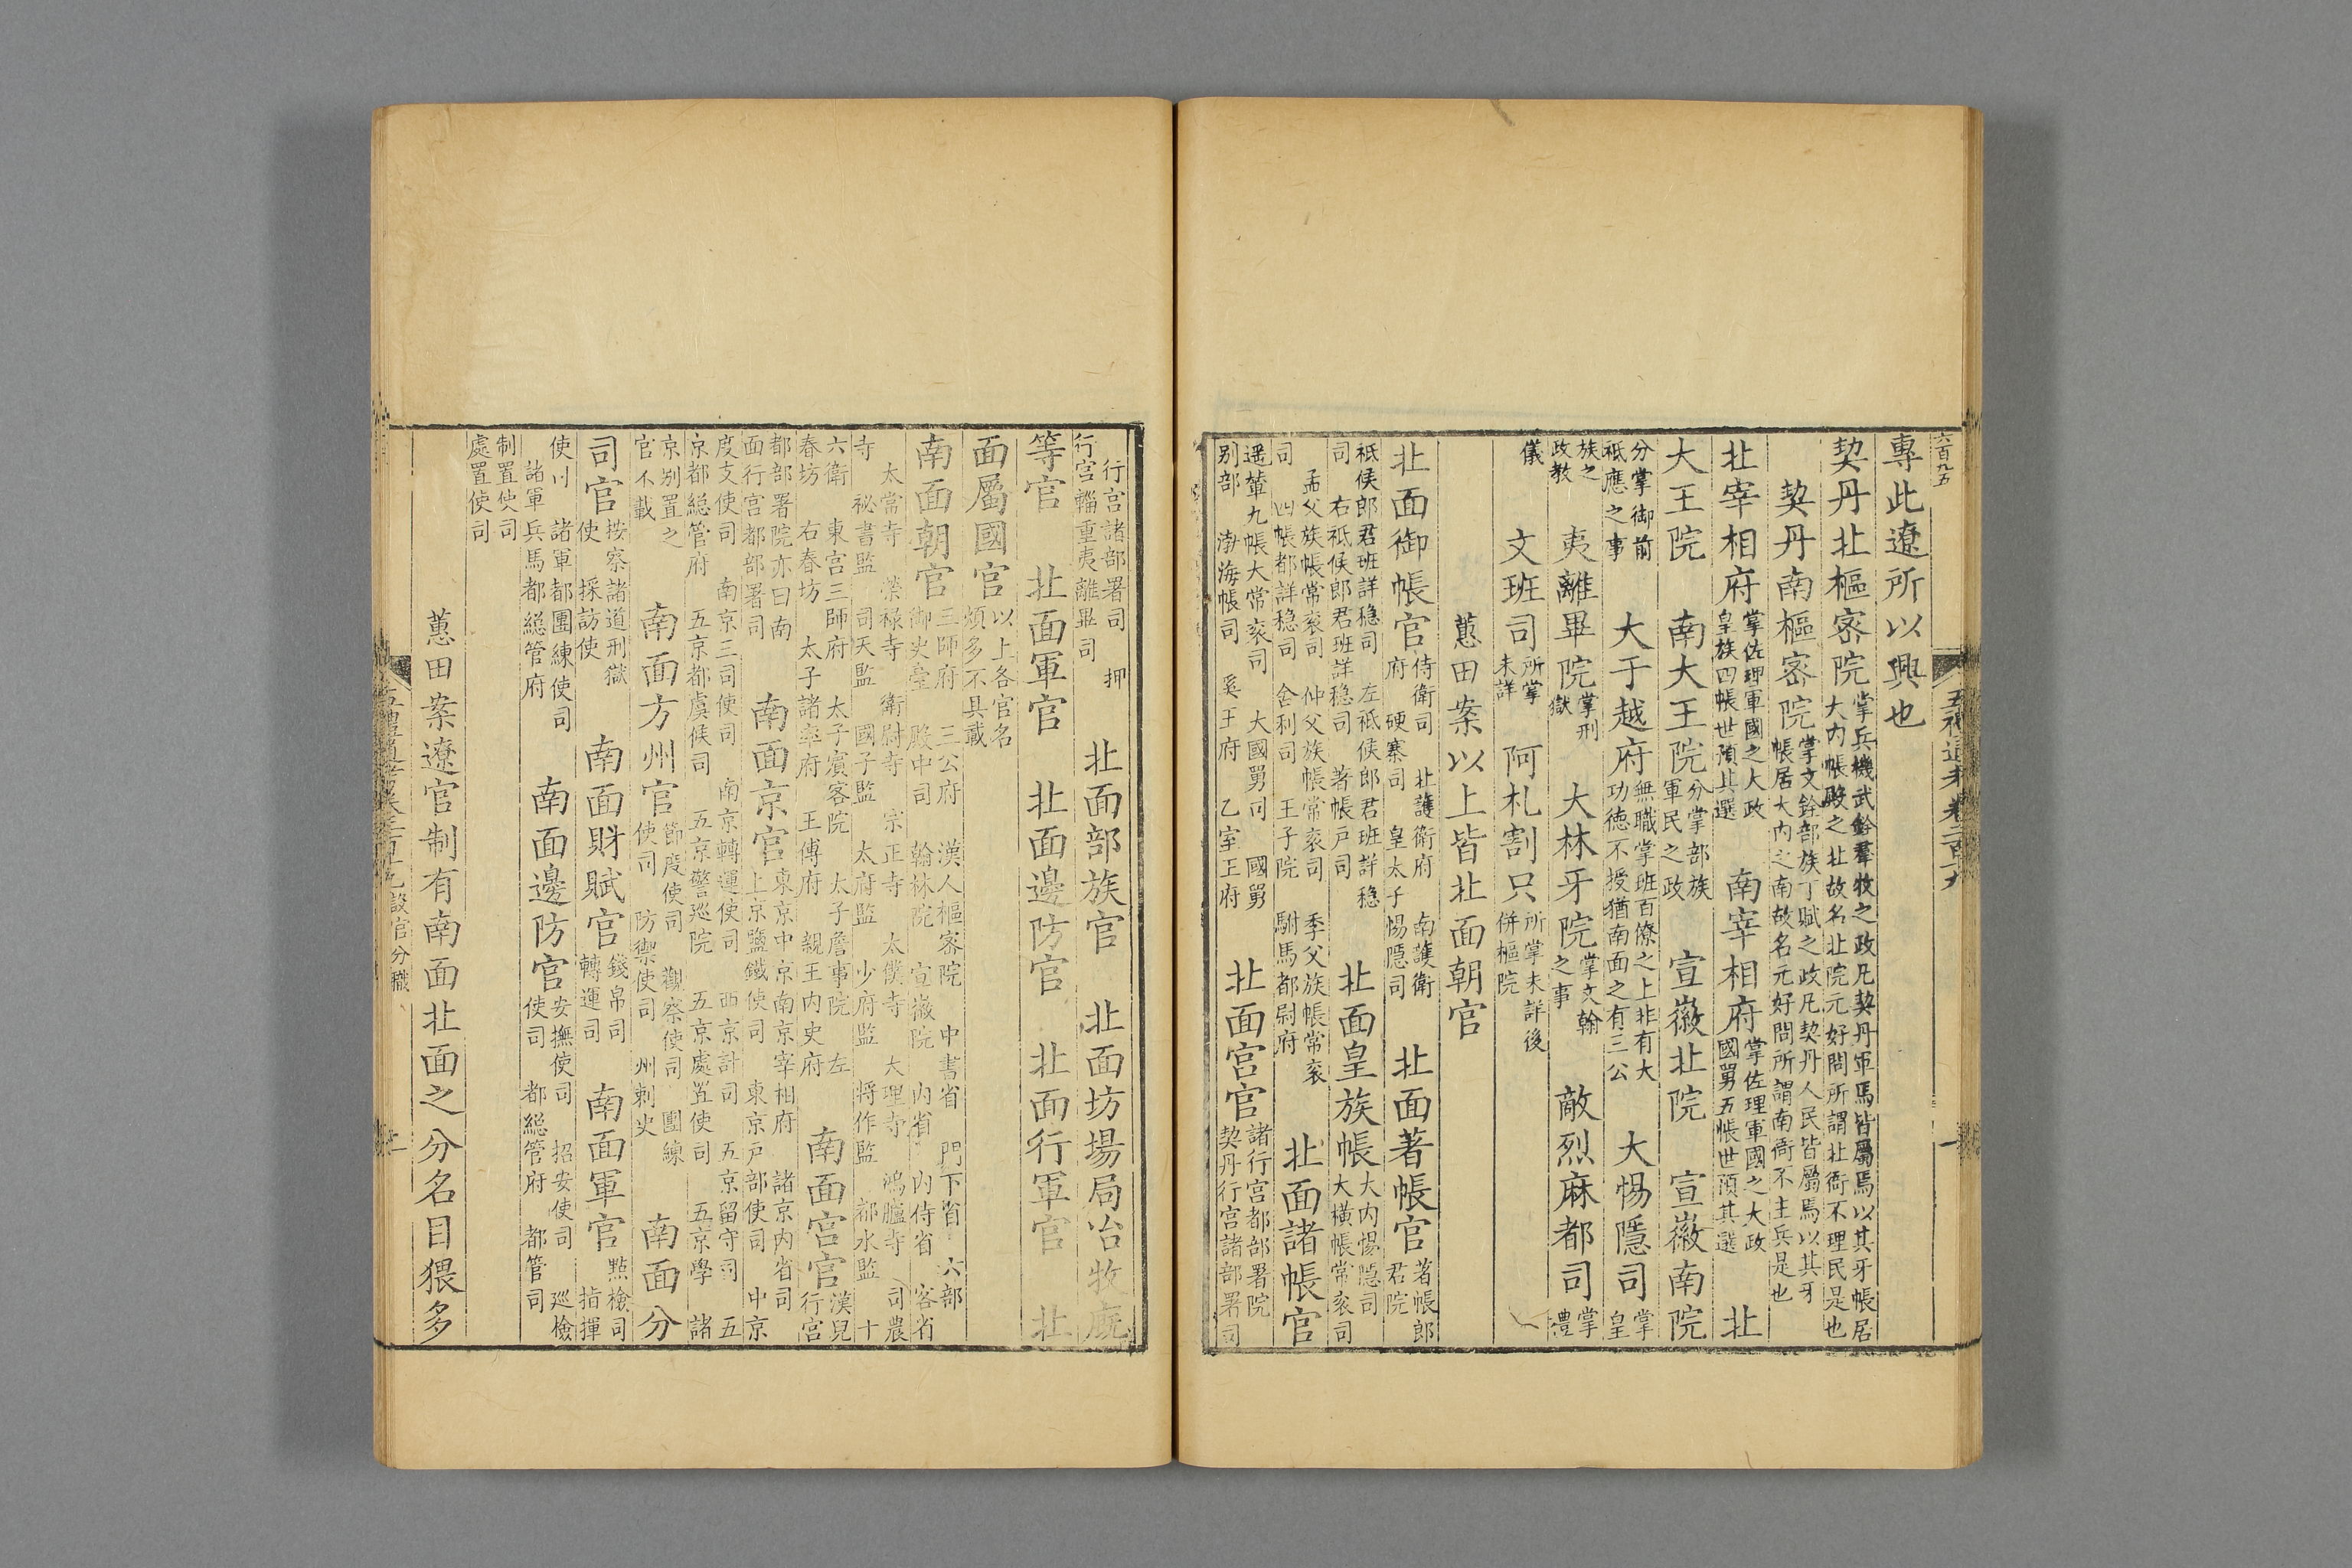 六百九五
專此遼所以興也
契丹北樞密院掌兵機武銓羣牧之政凡契丹軍馬皆屬焉以其牙帳居
大內帳殿之北故名北院元好問所謂北衙不理民是也
契丹南樞密院掌文銓部族丁賦之政凡契丹人民皆屬焉以其牙
帳居大內之南故名元好問所謂南衙不主兵是也
北宰相府掌佐理軍國之大政
皇族四帳世預其選
南宰相府掌佐理軍國之大政
國舅五帳世預其選
北
大王院
南大王院分掌部族
軍民之政
宣徽北院
宣徽南院
分掌御前
祗應之事
大于越府無職掌班百僚之上非有大
功德不授猶南面之有三公
大惕隱司掌
皇
族之
政教
夷離畢院掌刑
獄
大林牙院掌文翰
之事
敵烈麻都司掌
禮
儀
文班司所掌
未詳
阿札割只所掌未詳後
併樞院
蕙田案以上皆北面朝官
北面御帳官侍衛司 北護衛府 南護衛
府 硬寨司 皇太子惕隱司
北面著帳官著帳郎
君院
祗候郎君班詳穩司 左祗候郎君班詳穩
司 右祗候郎君班詳穩司 著帳戶司
北面皇族帳大內惕隱司
大橫帳常袞司
孟父族帳常袞司 仲父族帳常袞司 季父族帳常袞
司 四帳都詳穩司 舍利司 王子院 駙馬都尉府
北面諸帳官
遥輦九帳大常袞司 大國舅司 國舅
別部 渤海帳司 奚王府 乙室王府
北面宮官諸行宮都部署院
契丹行宮諸部署司
行宮諸部署司 押
行宮輜重夷離畢司
北面部族官
北面坊場局冶牧廄
等官
北面軍官
北面邊防官
北面行軍官
北
面屬國官以上各官名
煩多不具載
南面朝官三師府 三公府 漢人樞密院 中書省 門下省 六部
御史臺 殿中司 翰林院 宣徽院 內省 內侍省 客省
太常寺 崇祿寺 衛尉寺 宗正寺 太僕寺 大理寺 鴻臚寺 司農
寺 祕書監 司天監 國子監 太府監 少府監 將作監 都水監 十
六衛 東宮三師府 太子賓客院 太子詹事院 左
春坊 右春坊 太子諸率府 王傅府 親王內史府
南面宮官漢兒
行宮
都部署院亦曰南
面行宮都部署司
南面京官東京中京南京宰相府 諸京內省司
上京鹽鐵使司 東京戶部使司 中京
度支使司 南京三司使司 南京轉運使司 西京計司 五京留守司 五
京都總管府 五京都虞候司 五京警巡院 五京處置使司 五京學 諸
京別置之
官不載
南面方州官節度使司 觀察使司 團練
使司 防禦使司 州刺史
南面分
司官按察諸道刑獄
使 採訪使
南面財賦官錢帛司
轉運司
南面軍官點檢司
指揮
使司 諸軍都團練使司
諸軍兵馬都總管府
南面邊防官安撫使司 招安使司 巡檢
使司 都總管府 都管司
制置使司
處置使司
蕙田案遼官制有南面北面之分名目猥多